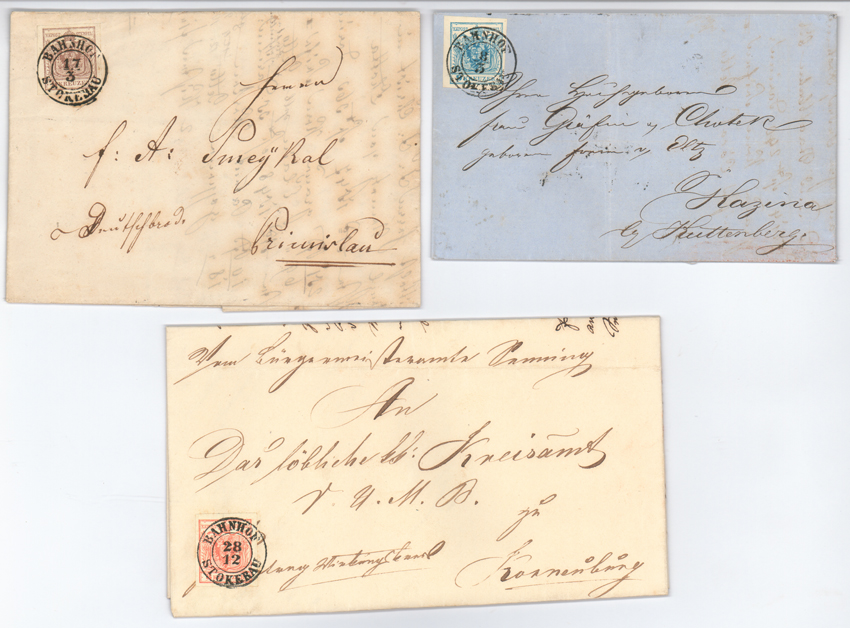 BAHNHOF
17
3
STOKERAU
Herrn
f: A: Smeÿkal
Deutschbrod
Primislau
BAHNHOF
STOKERAU
Hochgeboren
Frau Gräfin v Chotek
geborene v Eltz
Kazina
by Kuttenberg
Vom Bürgermeisteramte Senning
An
Das löbliche kk: Kreisamt
V. U. M. B.
zu
Korneuburg
BAHNHOF
28
12
STOKERAU